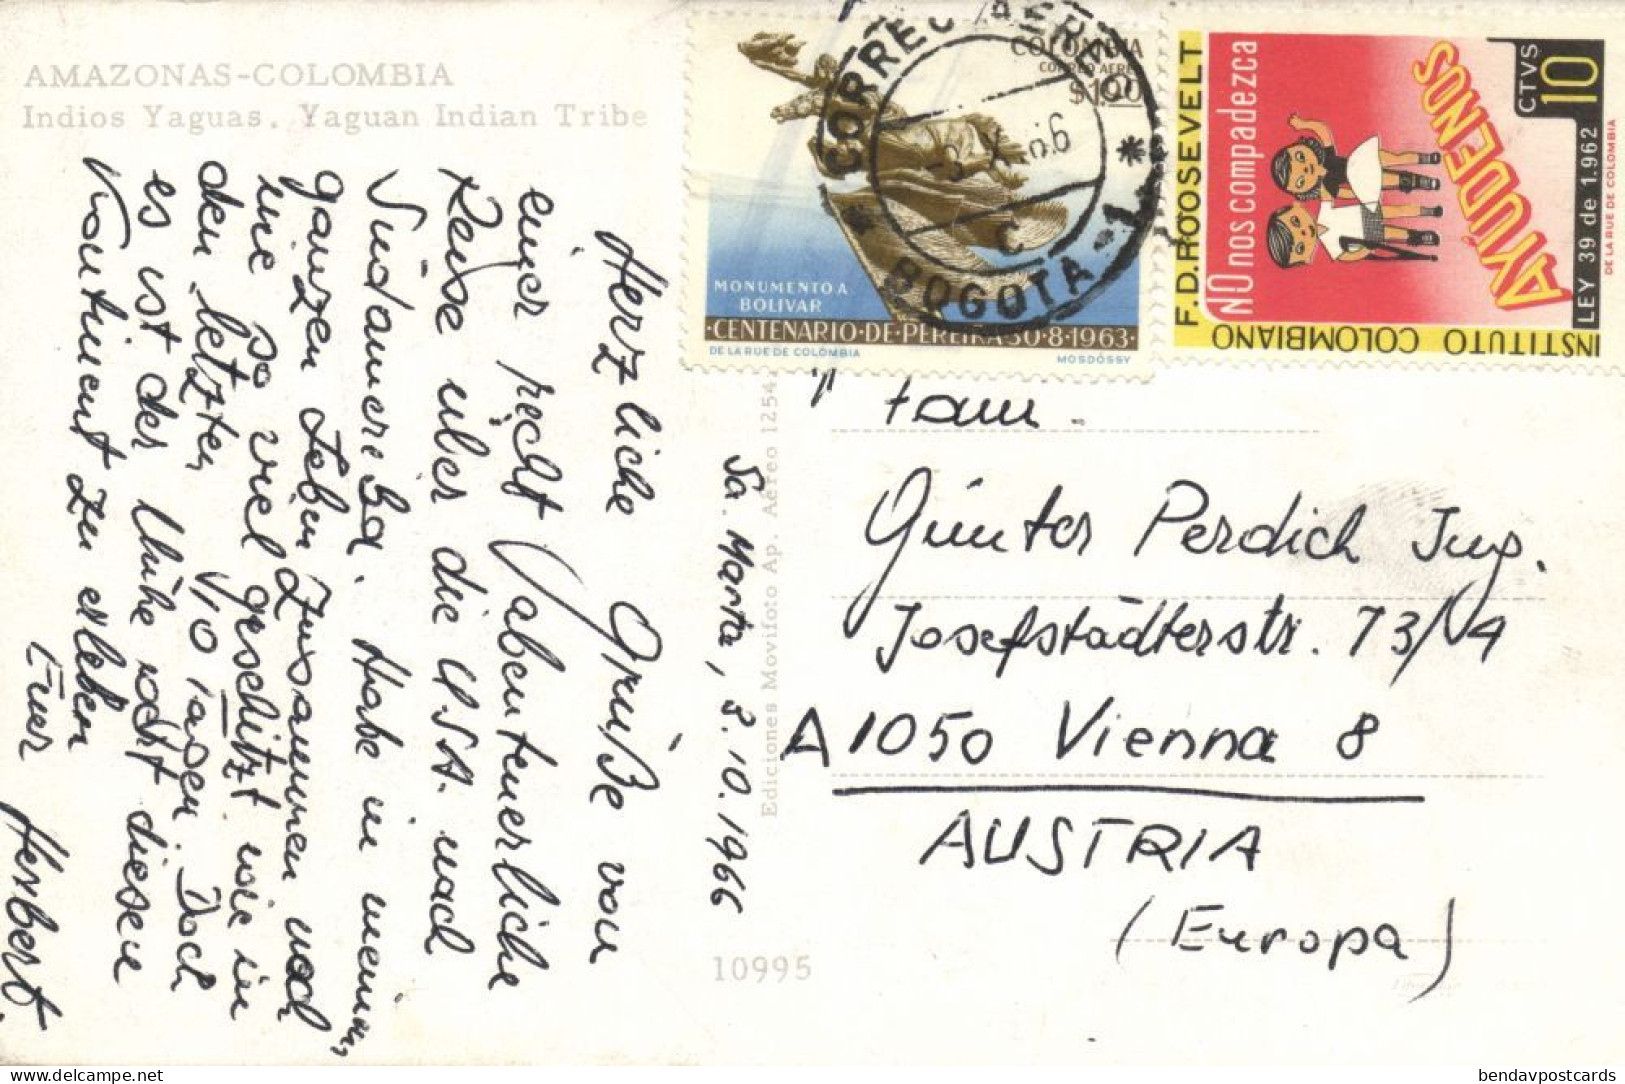 AMAZONAS-COLOMBIA
Indios Yaguas. Yaguan Indian Tribe
Herzliche Grüße von
einer recht abenteuerliche
Reise über die USA. nach
Südamerika. Habe in meinem
ganzen Leben zusammen noch
nie so viel geschwitzt wie in
den letzten 10 Tagen. Doch
es ist der Mühe wert diesen
Kontinent zu erleben
Euer
Herbert.
Sa. Marta, 3.10.1966
Ediciones Movifoto Ap. Aéreo 1254
10995
COLOMBIA
CORREO AEREO
$1.00
MONUMENTO A
BOLIVAR
·CENTENARIO·DE·PEREIRA 30·8·1963·
DE LA RUE DE COLOMBIA
MOSDÓSSY
CORREO AEREO
3 X 66
C
BOGOTA-1
INSTITUTO COLOMBIANO
F.D.ROOSEVELT
NO nos compadezca
AYÚDENOS
CTVS 10
LEY 39 de 1.962
DE LA RUE DE COLOMBIA
Fam.
Günter Perdich Jun.
Josefstädterstr. 73/14
A 1050 Vienna 8
AUSTRIA
(Europa)
delcampe.net
bendavpostcards